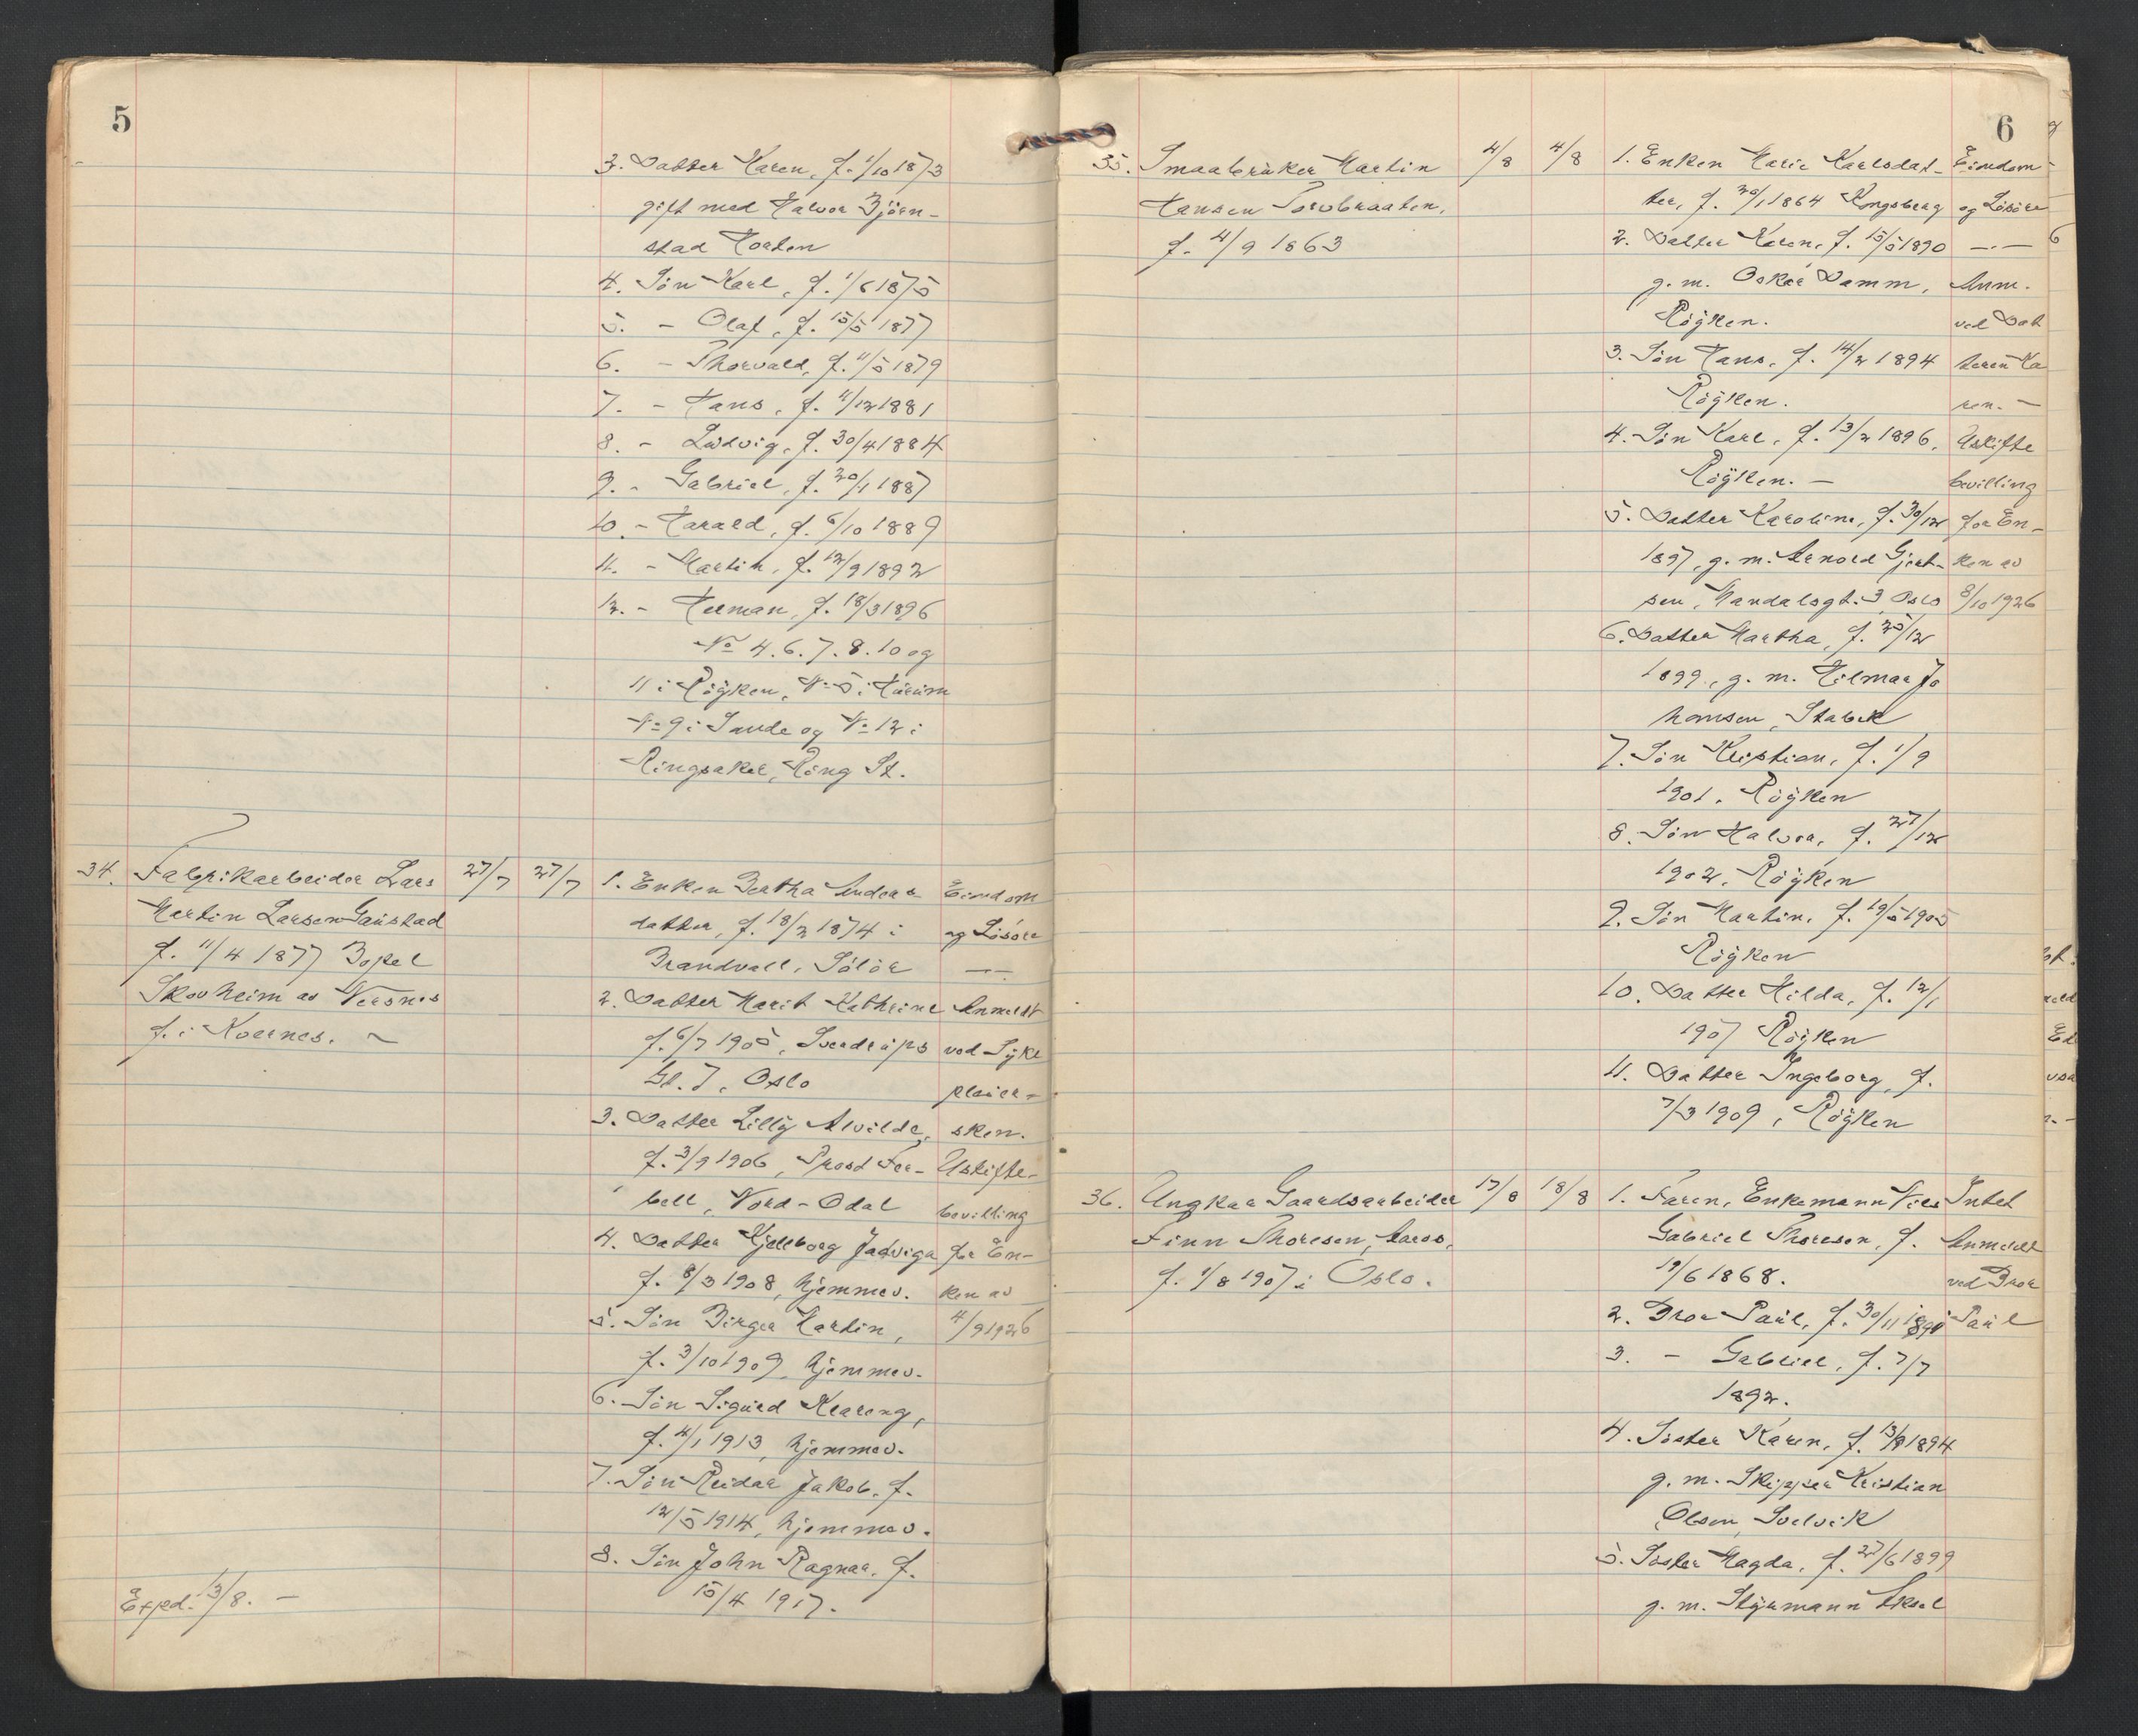 5
3. Datter Karen, f. 1/10 1873
gift med Halvor Björn-
stad Horten
4. Sön Karl, f. 1/6 1875
5. - Olaf, f. 15/5 1877
6. - Thorvald, f. 11/5 1879
7. - Hans, f. 11/12 1881
8. - Ludvig, f. 30/4 1884
9. - Gabriel, f. 20/1 1887
10. - Harald, f. 6/10 1889
11. - Martin, f. 12/9 1892
12. - Herman, f. 18/3 1896
No 4. 6. 7. 8. 10 og
11 i Röyken, No 5 i Hurum
No 9 i Sande og No 12 i
Ringsaker, Ring St.
34. Fabrikarbeider Lars 27/7 27/7 1. Enken Bertha Anders- Eiendom
Martin Larsen Gaustad datter, f. 18/2 1874 i og Lösöre
f. 11/4 1877 Bopel Brandvall, Solör —.—
Skovheim av Nersnes 2. Datter Marit Kathrine Anmeldt
f. i Koernes. ~ f. 6/7 1905, Sverdrups ved Syke
Gt. 7, Oslo pleier-
3. Datter Lilly Alvilde, sken.
f. 3/9 1906, Trosd Fer- Uskifte-
bell, Nord-Odal bevilling
4. Datter Kjellborg Jadviga for En-
f. 8/3 1908, hjemmev. ken av
5. Sön Birger Martin, 4/9 1926
f. 3/10 1909, hjemmev.
6. Sön Sigurd Kvareng,
f. 4/1 1913, hjemmev.
7. Sön Reidar Jakob, f.
12/5 1914, hjemmev.
8. Sön John Ragnar, f.
15/4 1917.
Exped. 13/8. —
6
35. Smaabruker Martin 4/8 4/8 1. Enken Marie Karlsdat- Eiendom
Hansen Torvbraaten, ter, f. 30/1 1864 Kongsberg og Lösöre
f. 4/9 1863 2. Datter Karen, f. 15/5 1890 —.—
g. m. Oskar Damm, Anm.
Röyken. ved Dat
3. Sön Hans, f. 14/2 1894 teren Ka
Röyken. ren. —
4. Sön Karl, f. 13/2 1896, Uskifte
Röyken. — bevilling
5. Datter Karoline, f. 30/12 for En-
1897, g. m. Arnold Gjert- ken av
sen, Mandalsgt. 3, Oslo 8/10 1926
6. Datter Martha, f. 25/12
1899, g. m. Hilmar Jo
hansen, Stabek
7. Sön Kristian, f. 1/9
1901, Röyken
8. Sön Halvor, f. 27/12
1902, Röyken
9. Sön Martin, f. 19/5 1905
Röyken
10. Datter Hilda, f. 12/1
1907 Röyken
11. Datter Ingeborg, f.
7/3 1909, Röyken
36. Ungkar Gaardsarbeider 17/8 18/8 1. Faren, Enkemann Nils Intet
Finn Thoresen, Aaros, Gabriel Thoresen, f. Anmeldt
f. 1/8 1907 i Oslo. 19/6 1868. ved Bror
2. Bror Paul, f. 30/11 1890 Paul
3. - Gabriel, f. 7/7
1892.
4. Söster Karen, f. 13/9 1894
g. m. Skipper Kristian
Olsen, Svelvik
5. Söster Magda, f. 27/6 1899
g. m. Styrmann Aksel